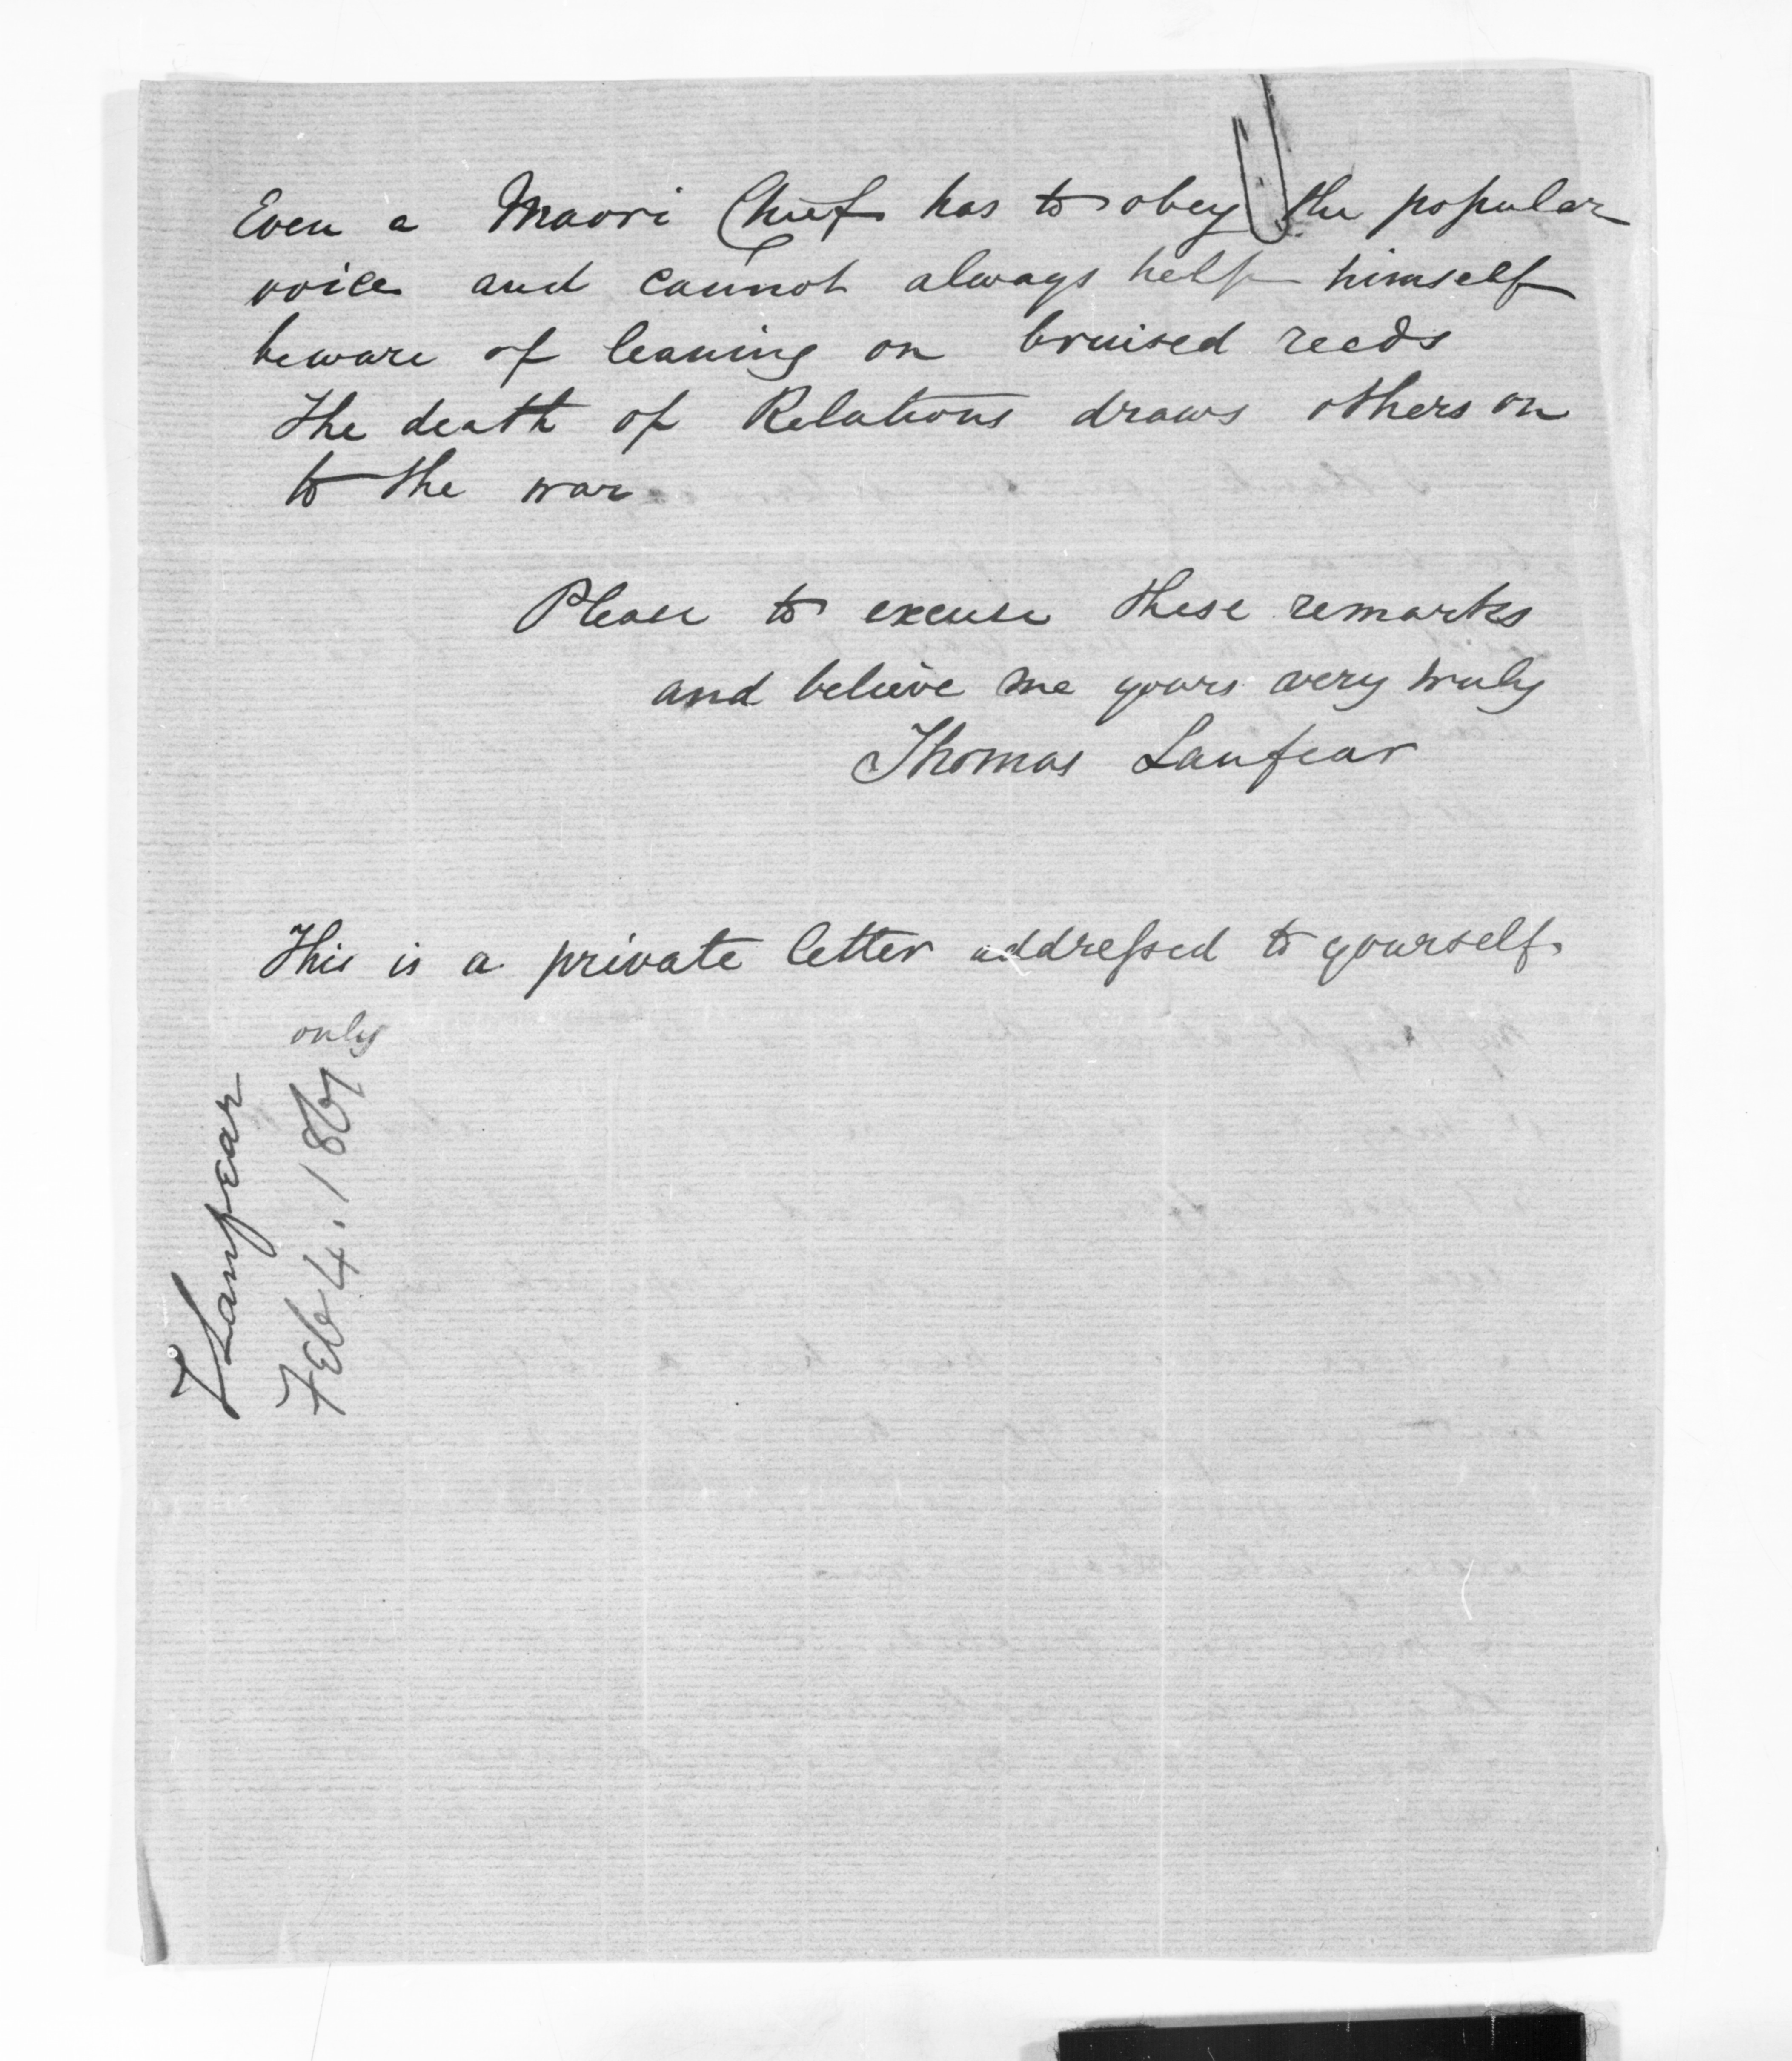 Even a Maori Chief has to obey the popular
voice and cannot always help himself
beware of leaning on bruised reeds
The death of Relations draws others on
to the war
Please to excuse these remarks
and believe me yours very truly
Thomas Lanfear
This is a private letter addressed to yourself.
only
T Lanfear
Feb 4. 1867